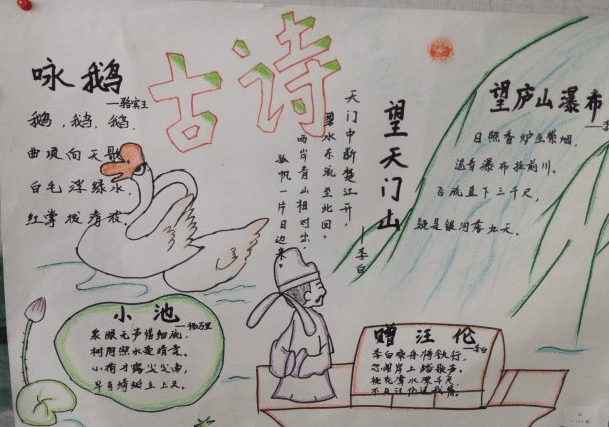 古诗
咏鹅
—骆宾王
鹅，鹅，鹅，
曲项向天歌
白毛浮绿水，
红掌拨清波。
望天门山
—李白
天门中断楚江开，
碧水东流至此回。
两岸青山相对出，
孤帆一片日边来。
望庐山瀑布
日照香炉生紫烟，
遥看瀑布挂前川。
飞流直下三千尺，
疑是银河落九天。
小池
—杨万里
泉眼无声惜细流，
树阴照水爱晴柔。
小荷才露尖尖角，
早有蜻蜓立上头。
赠汪伦
—李白
李白乘舟将欲行，
忽闻岸上踏歌声。
桃花潭水深千尺
不及汪伦送我情。